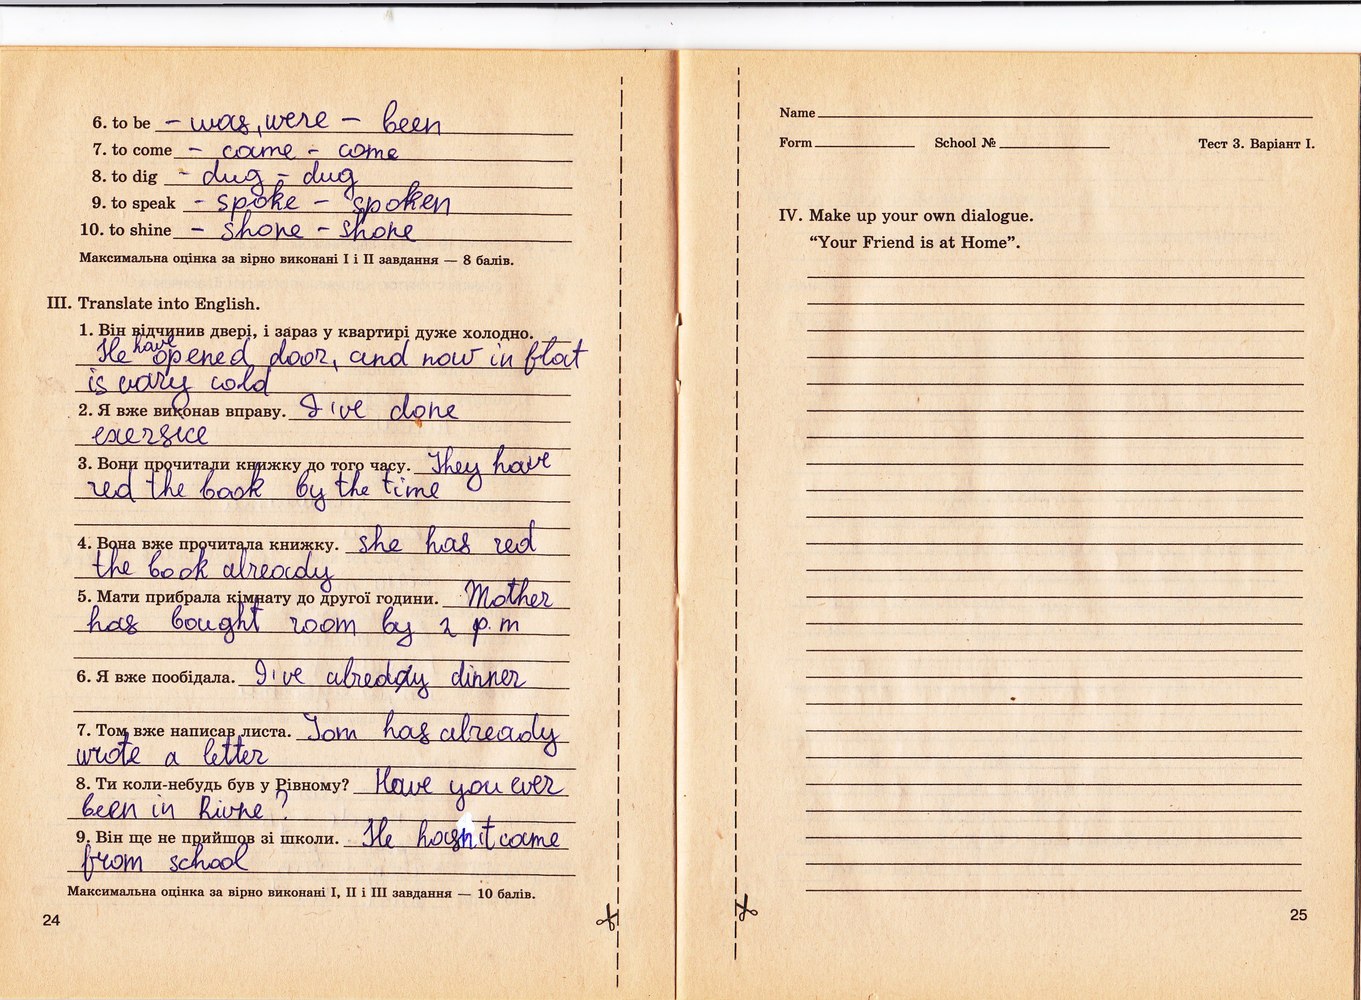 6. to be – was, were – been
7. to come – came – come
8. to dig – dug – dug
9. to speak – spoke – spoken
10. to shine – shone – shone
Максимальна оцінка за вірно виконані I і II завдання — 8 балів.
III. Translate into English.
1. Він відчинив двері, і зараз у квартирі дуже холодно.
He have opened door, and now in flat
is vary cold
2. Я вже виконав вправу. I've done
exersice
3. Вони прочитали книжку до того часу. They have
red the book by the time
4. Вона вже прочитала книжку. she has red
the book already
5. Мати прибрала кімнату до другої години. Mother
has bought room by 2 p.m
6. Я вже пообідала. I've already dinner
7. Том вже написав листа. Tom has already
wrote a letter
8. Ти коли-небудь був у Рівному? Have you ever
been in Rivne?
9. Він ще не прийшов зі школи. He hasn't came
from school
Максимальна оцінка за вірно виконані I, II і III завдання — 10 балів.
24
Name
Form School № Тест 3. Варіант I.
IV. Make up your own dialogue.
“Your Friend is at Home”.
25